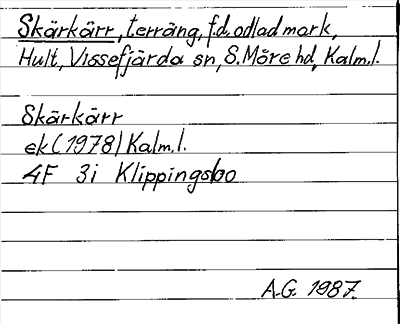 Skärkärr, terräng, f.d. odlad mark,
Hult, Vissefjärda sn, S. Möre hd, Kalm.l.
Skärkärr
ek (1978) Kalm.l.
4F 3i Klippingsbo
A.G. 1987.